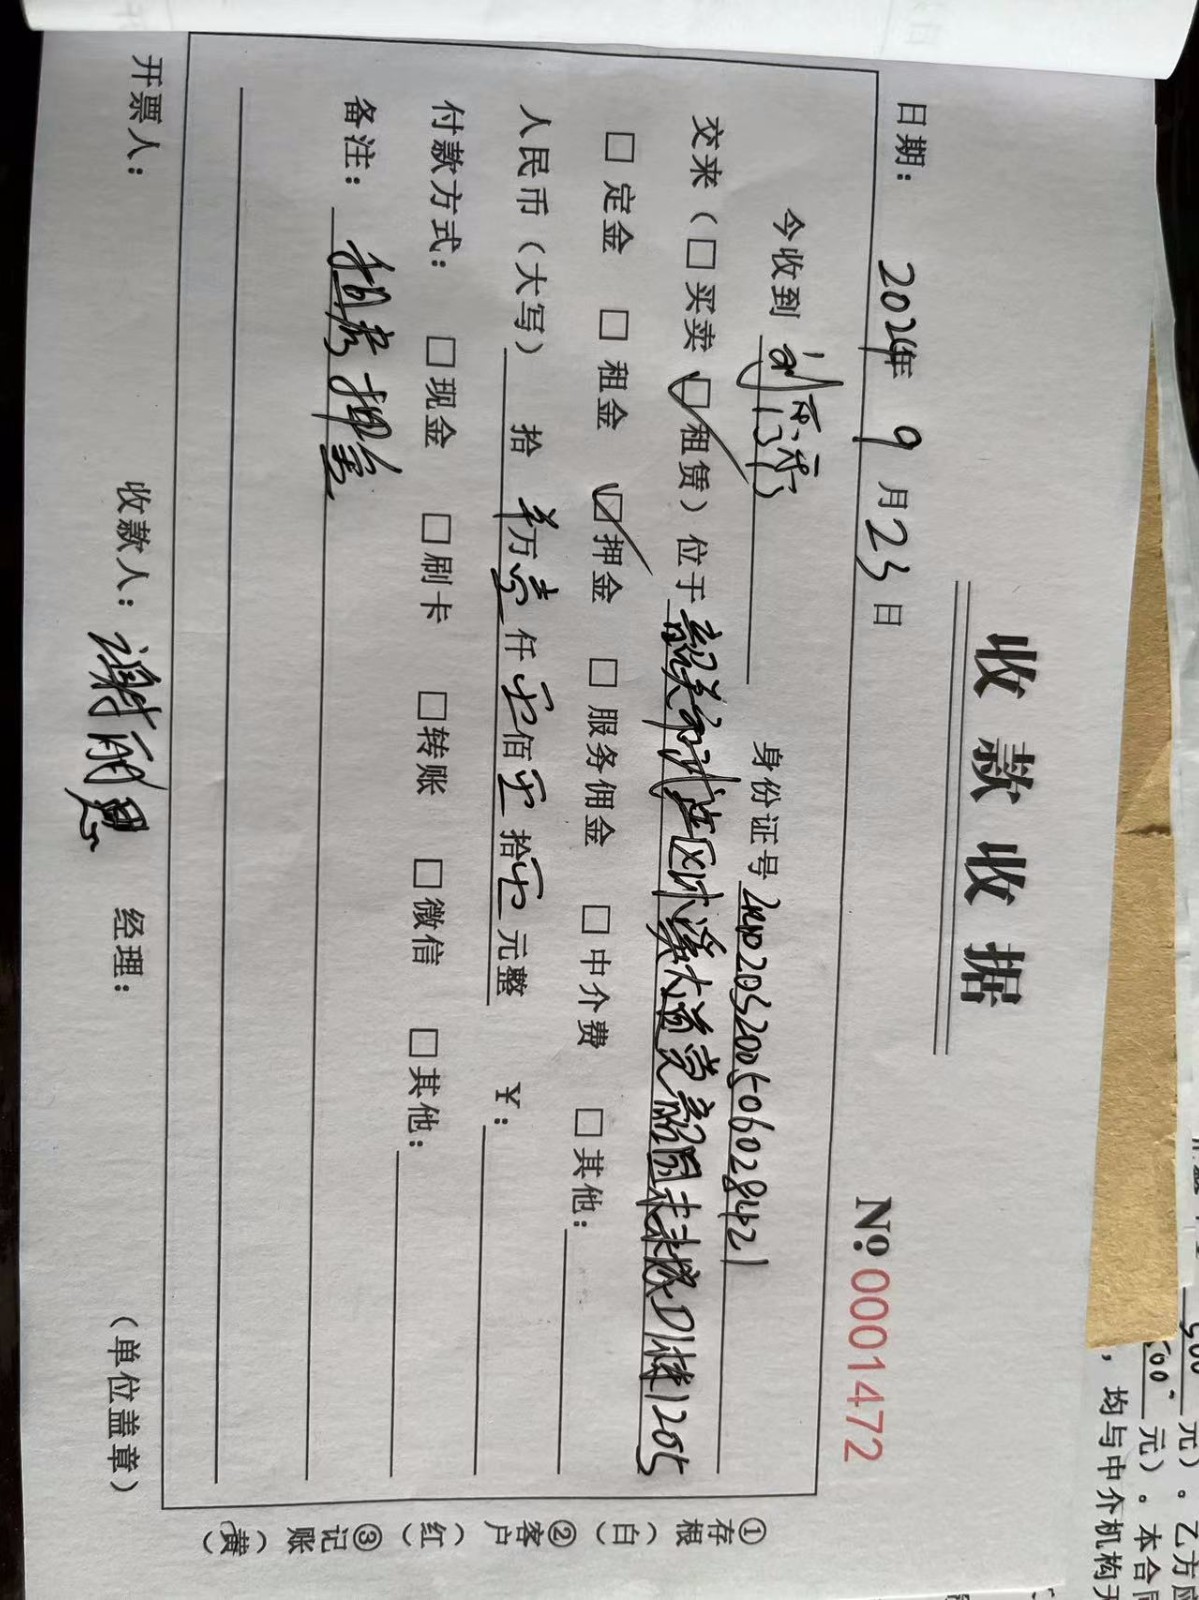 收款收据
No.0001472
日期： 2024年 9月23日
今收到 身份证号
交来（□买卖 ☑租赁）位于韶关市浈江区 大道 韶园未来城D1栋1205
□定金 □租金 ☑押金 □服务佣金 □中介费 □其他：
人民币（大写） 拾 万壹仟零佰零拾零元整 ¥：
付款方式： □现金 □刷卡 □转账 □微信 □其他：
备注： 租房押金
开票人： 收款人：谢丽恩 经理： （单位盖章）
①存根（白） ②客户（红） ③记账（黄）
元）。乙方应
500 元）。本合同
，均与中介机构无